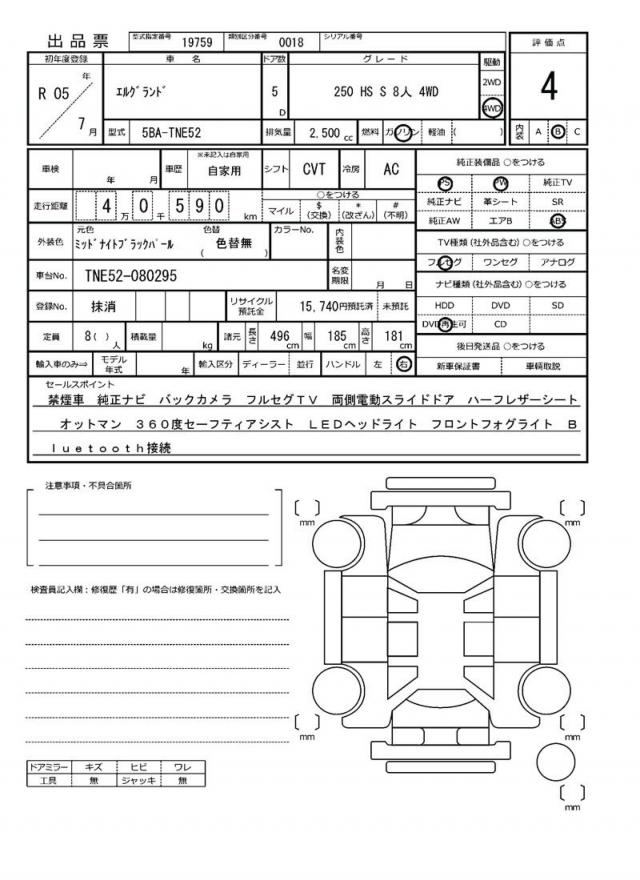 出品票 型式指定番号 19759 類別区分番号 0018 シリアル番号
評価点
4
初年度登録 車名 ドア数 グレード 駆動
R 05 年 7 月
エルグランド 5 D 250 HS S 8人 4WD
2WD
4WD
型式 5BA-TNE52 排気量 2,500 cc 燃料 ガソリン 軽油 ( )
内装 A B C
車検 年 月 車歴 ※未記入は自家用 自家用 シフト CVT 冷房 AC
純正装備品 ○をつける
PS PW 純正TV
純正ナビ 革シート SR
純正AW エアB ABS
走行距離 4 万 0 千 5 9 0 km
○をつける
マイル $ (交換) * (改ざん) # (不明)
外装色 元色 ミッドナイトブラックパール 色替 ( 色替無 ) カラーNo. 内装色
TV種類 (社外品含む) ○をつける
フルセグ ワンセグ アナログ
車台No. TNE52-080295 名変期限 月 日
ナビ種類 (社外品含む) ○をつける
HDD DVD SD
DVD再生可 CD
登録No. 抹消 リサイクル預託金 15,740円預託済 未預託
定員 8( ) 人 積載量 kg 諸元 長さ 496 cm 幅 185 cm 高さ 181 cm
後日発送品 ○をつける
新車保証書 車輌取説
輸入車のみ⇨ モデル年式 年 輸入区分 ディーラー 並行 ハンドル 左 右
セールスポイント
禁煙車 純正ナビ バックカメラ フルセグTV 両側電動スライドドア ハーフレザーシート
オットマン 360度セーフティアシスト LEDヘッドライト フロントフォグライト B
luetooth接続
注意事項・不具合箇所
検査員記入欄:修復歴「有」の場合は修復箇所・交換箇所を記入
[ ] mm
[ ] mm
[ ] mm
[ ] mm
[ ] mm
ドアミラー キズ ヒビ ワレ
工具 無 ジャッキ 無